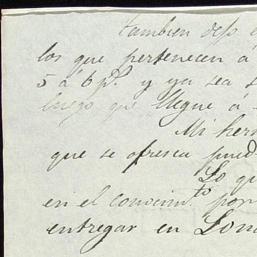 tambien dejo
los que pertenecen á
5 á 6 p.s y ya sea
luego que llegue á
Mi her
que se ofresca pued
Lo qu
en el conocim.to por
entregar en Lon